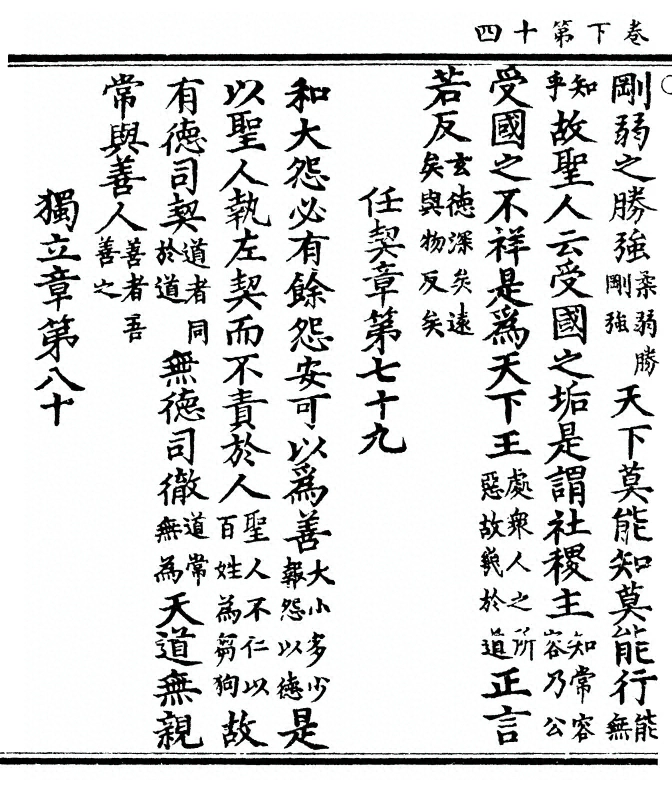 卷下第十四
剛弱之勝強柔弱勝剛強天下莫能知莫能行能無
知乎故聖人云受國之垢是謂社稷主知常容容乃公
受國之不祥是爲天下王處衆人之所惡故於道正言
若反玄德深矣遠矣與物反矣
任契章第七十九
和大怨必有餘怨安可以爲善大小多少報怨以德是
以聖人執左契而不責於人聖人不仁以百姓為芻狗故
有德司契道者同於道無德司徹道常無為天道無親
常與善人善者吾善之
獨立章第八十